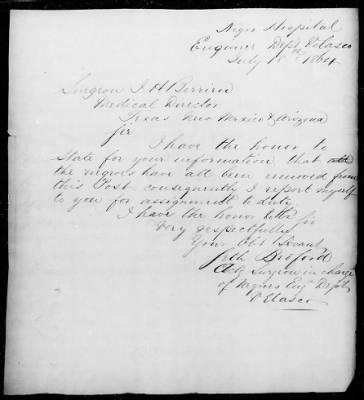 Negro Hospital
Engineer Dept Velasco
July 18th 1864
Surgeon J. H Berrien
Medical Director
Texas New Mexico & Arizona
Sir
I have the honor to
State for your information that
the negroes have all been removed from
this Post consequently I report myself
to you for assignment to duty
I have the honor to be Sir
Very respectfully
Your Obt Servant
Seth Bosford
Actg Surgeon in charge
of Negroes Eng Dept
Velasco